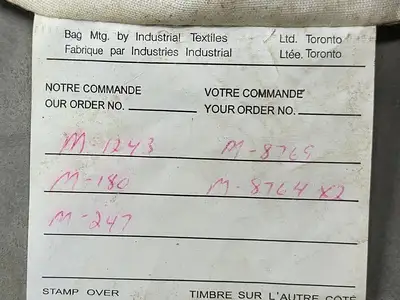 Bag Mtg. by Industrial Textiles Ltd. Toronto
Fabrique par Industries Industrial Ltée. Toronto
NOTRE COMMANDE VOTRE COMMANDE
OUR ORDER NO. YOUR ORDER NO.
M-1243 M-8769
M-180 M-8764 x2
M-247
STAMP OVER TIMBRE SUR L'AUTRE COTÉ